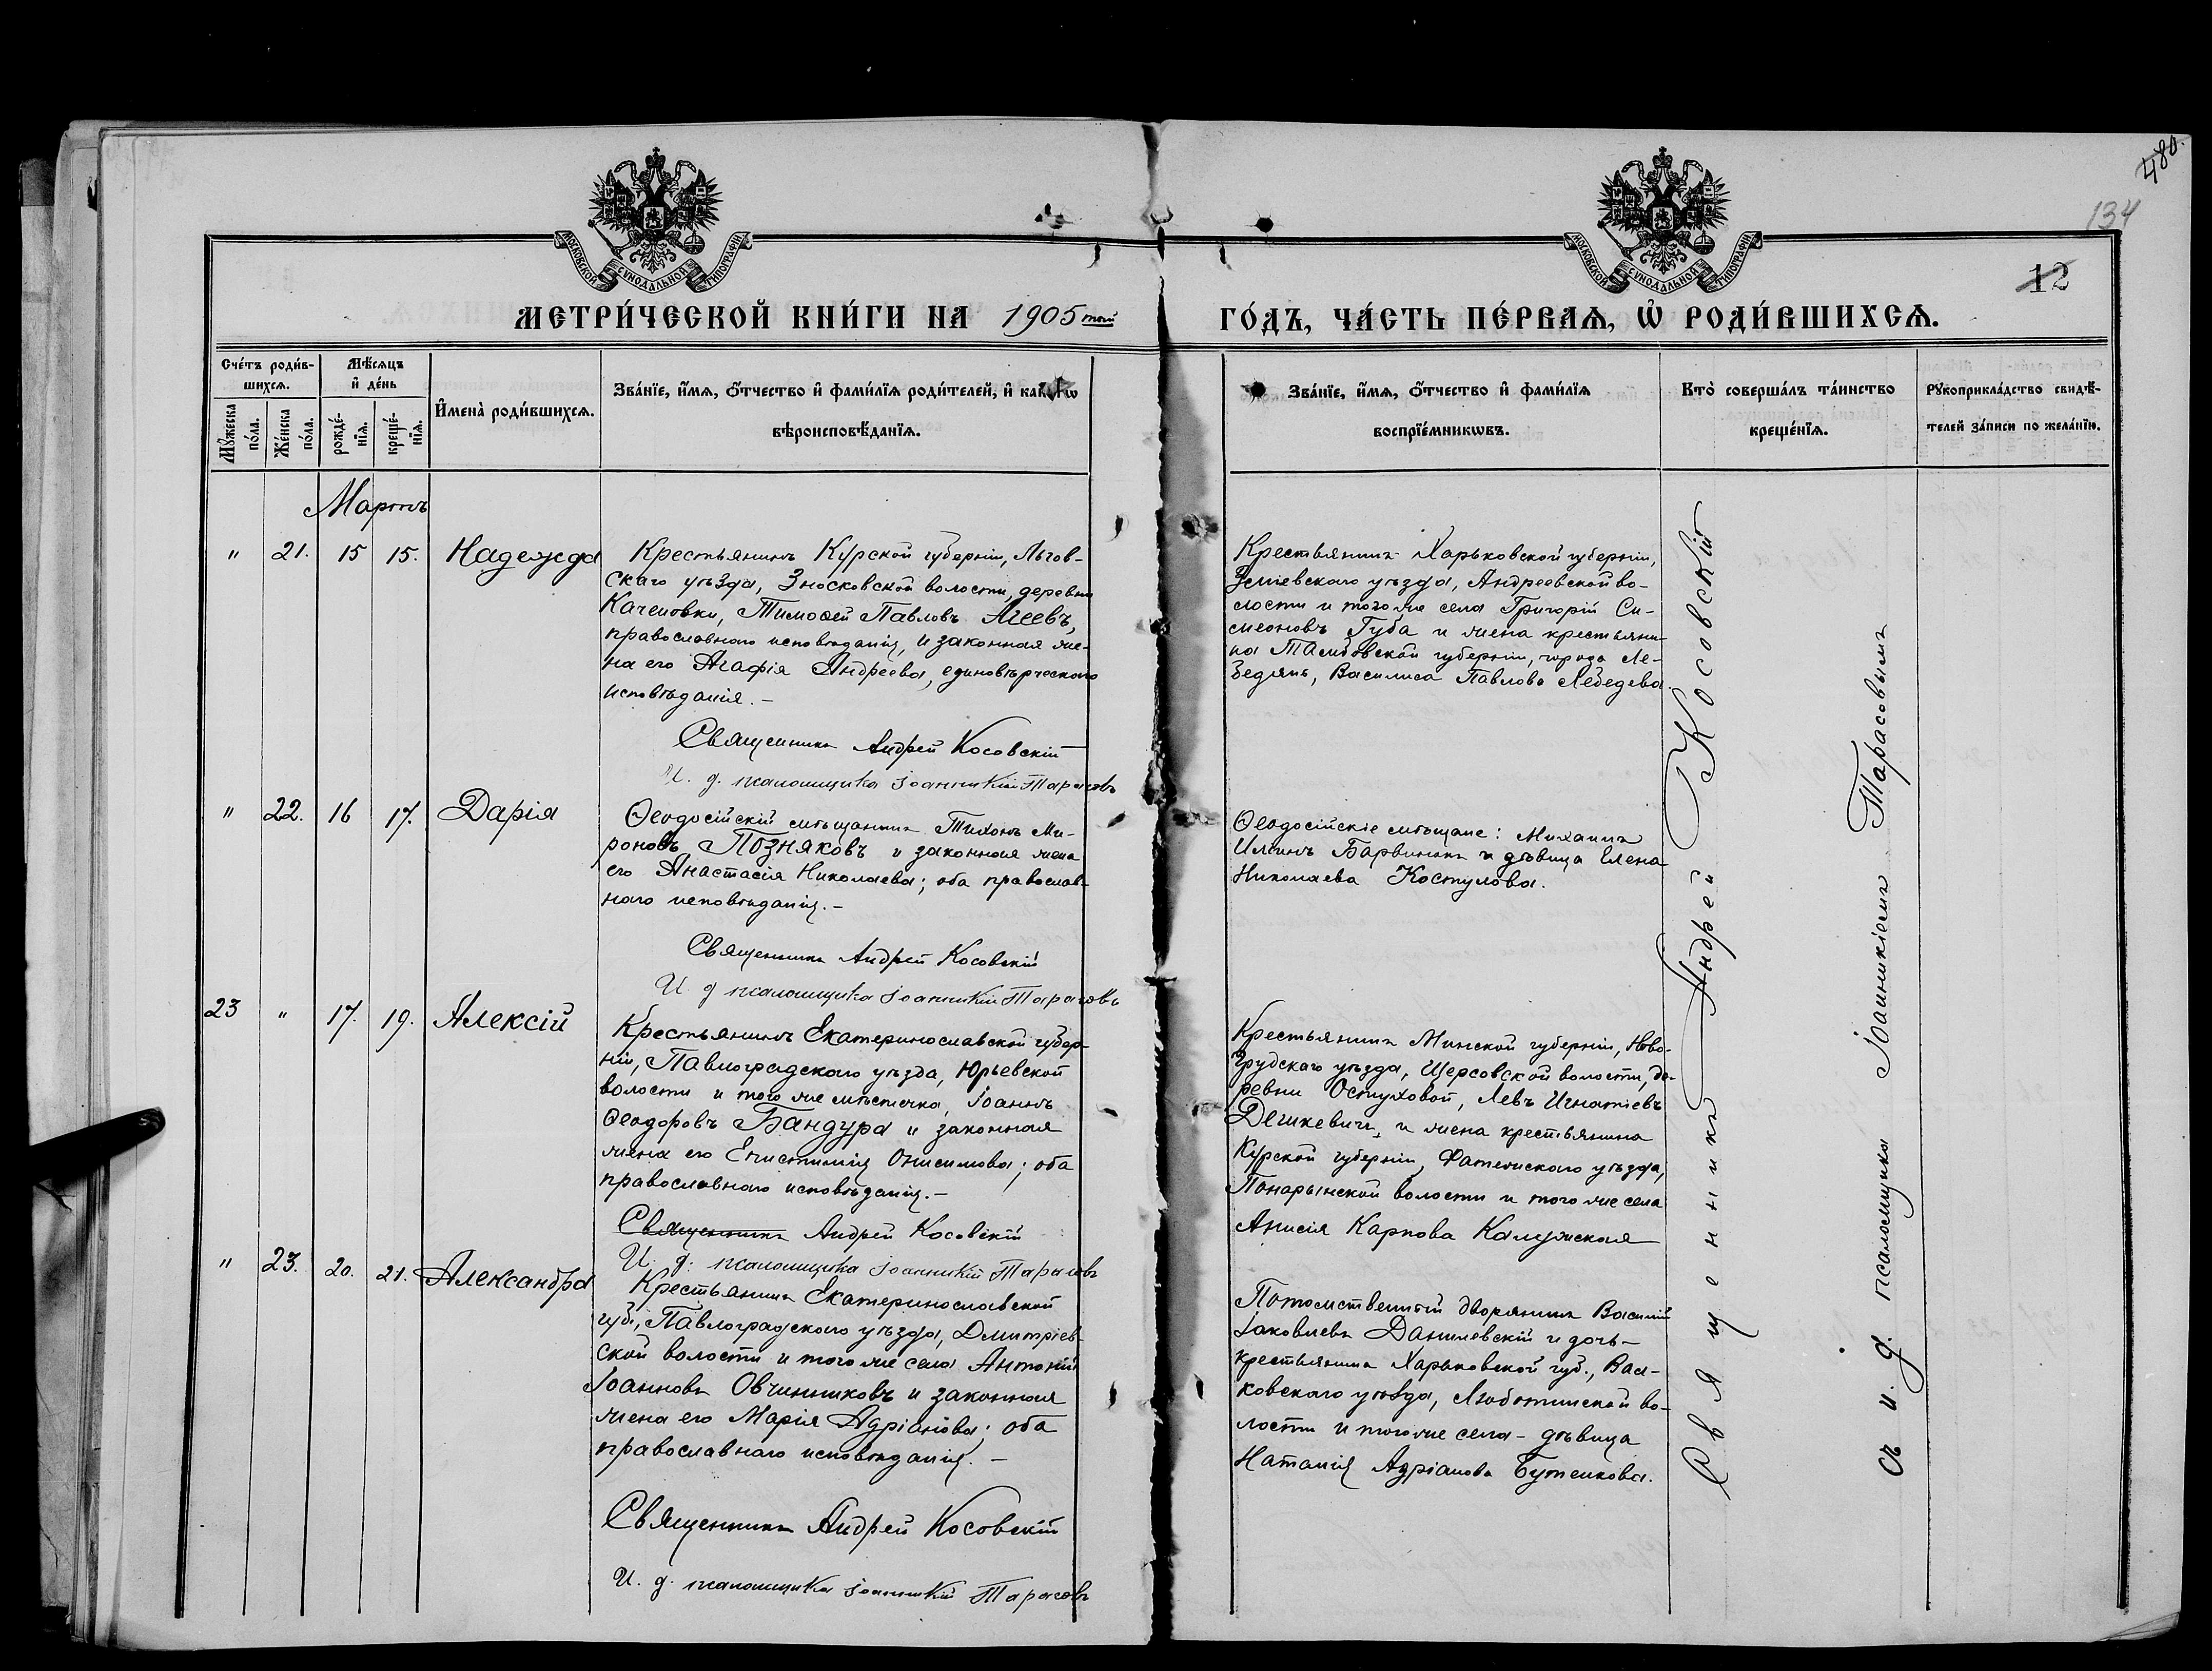 480.
134
12
МОСКОВСКОЙ СѴНОДАЛЬНОЙ ТИПОГРАФІИ
МОСКОВСКОЙ СѴНОДАЛЬНОЙ ТИПОГРАФІИ
МЕТРИ́ЧЕСКОЙ КНИ́ГИ НА 1905 той ГО́ДЪ, ЧА́СТЬ ПЕ́РВАѦ, Ѽ РОДИ́ВШИХСѦ.
Сче́тъ роди́в-
шихсѧ.
Мꙋ́жеска
по́ла.
Же́нска
по́ла.
Мѣ́сѧцъ
и҆ де́нь
рожде́-
нїѧ.
креще́-
нїѧ.
И҆мена̀ роди́вшихсѧ.
Зва́нїе, и҆́мѧ, ѻ҆́тчество и҆ фами́лїѧ роди́телей, и҆
вѣроисповѣ́данїѧ.
Зва́нїе, и҆́мѧ, ѻ҆́тчество и҆ фами́лїѧ
воспрїе́мникѡвъ.
Кто̀ соверша́лъ та́инство
креще́нїѧ.
Рꙋкоприкла́дство свидѣ́-
телей за́писи по жела́нїю.
Мартъ
" 21. 15 15. Надежда
Крестьянинъ Курской губерніи, Льгов-
скаго уѣзда, Зносковской волости, деревни
Каченовки, Тимоѳей Павловъ Агеевъ,
православнаго исповѣданія, и законная же-
на его Агафія Андреева, единовѣрческаго
исповѣданія. -
Священникъ Андрей Косовскій
И. д. псаломщика Іоанникій Тарасовъ
Крестьянинъ Харьковской губерніи,
Зміевскаго уѣзда, Андреевской во-
лости и того же села Григорій Си-
меоновъ Губа и жена крестьяни-
на Тамбовской губерніи, города Ле-
бедянь, Василиса Павлова Лебедева.
" 22. 16 17. Дарія
Ѳеодосійскій мѣщанинъ Тихонъ Ми-
роновъ Позняковъ и законная жена
его Анастасія Николаева; оба православ-
наго исповѣданія. -
Священникъ Андрей Косовскій
И. д. псаломщика Іоанникій Тарасовъ
Ѳеодосійскіе мѣщане: Михаилъ
Ильинъ и дѣвица Елена
Николаева Костулова.
23 " 17. 19. Алексій
Крестьянинъ Екатеринославской губер-
ніи, Павлоградскаго уѣзда, Юрьевской
волости и того же мѣстечка, Іоаннъ
Ѳеодоровъ Бандура и законная
жена его Онисимова; оба
православнаго исповѣданія. -
Священникъ Андрей Косовскій
И. д. псаломщика Іоанникій Тарасовъ
Крестьянинъ Минской губерніи, Ново-
грудскаго уѣзда, Щерсовской волости, де-
ревни Остуховой, Левъ Игнатіевъ
Дешкевичъ, и жена крестьянина
Курской губерніи, Фатежскаго уѣзда,
Понарынской волости и того же села
Анисія Карпова Калужская
" 23. 20. 21. Александра
Крестьянинъ Екатеринославской
губ., Павлоградскаго уѣзда, Дмитріев-
ской волости и того же села Антоній
Іоанновъ Овчинниковъ и законная
жена его Марія Адріанова; оба
православнаго исповѣданія. -
Священникъ Андрей Косовскій
И. д. псаломщика Іоанникій Тарасовъ
Потомственный дворянинъ Василій
Іаковлевъ Данилевскій и дочь
крестьянина Харьковской губ., Вал-
ковскаго уѣзда, Люботинской во-
лости и того же села - дѣвица
Наталія Адріанова Бутенкова.
Священникъ Андрей Косовскій
съ и. д. псаломщика Іоанникіемъ Тарасовымъ